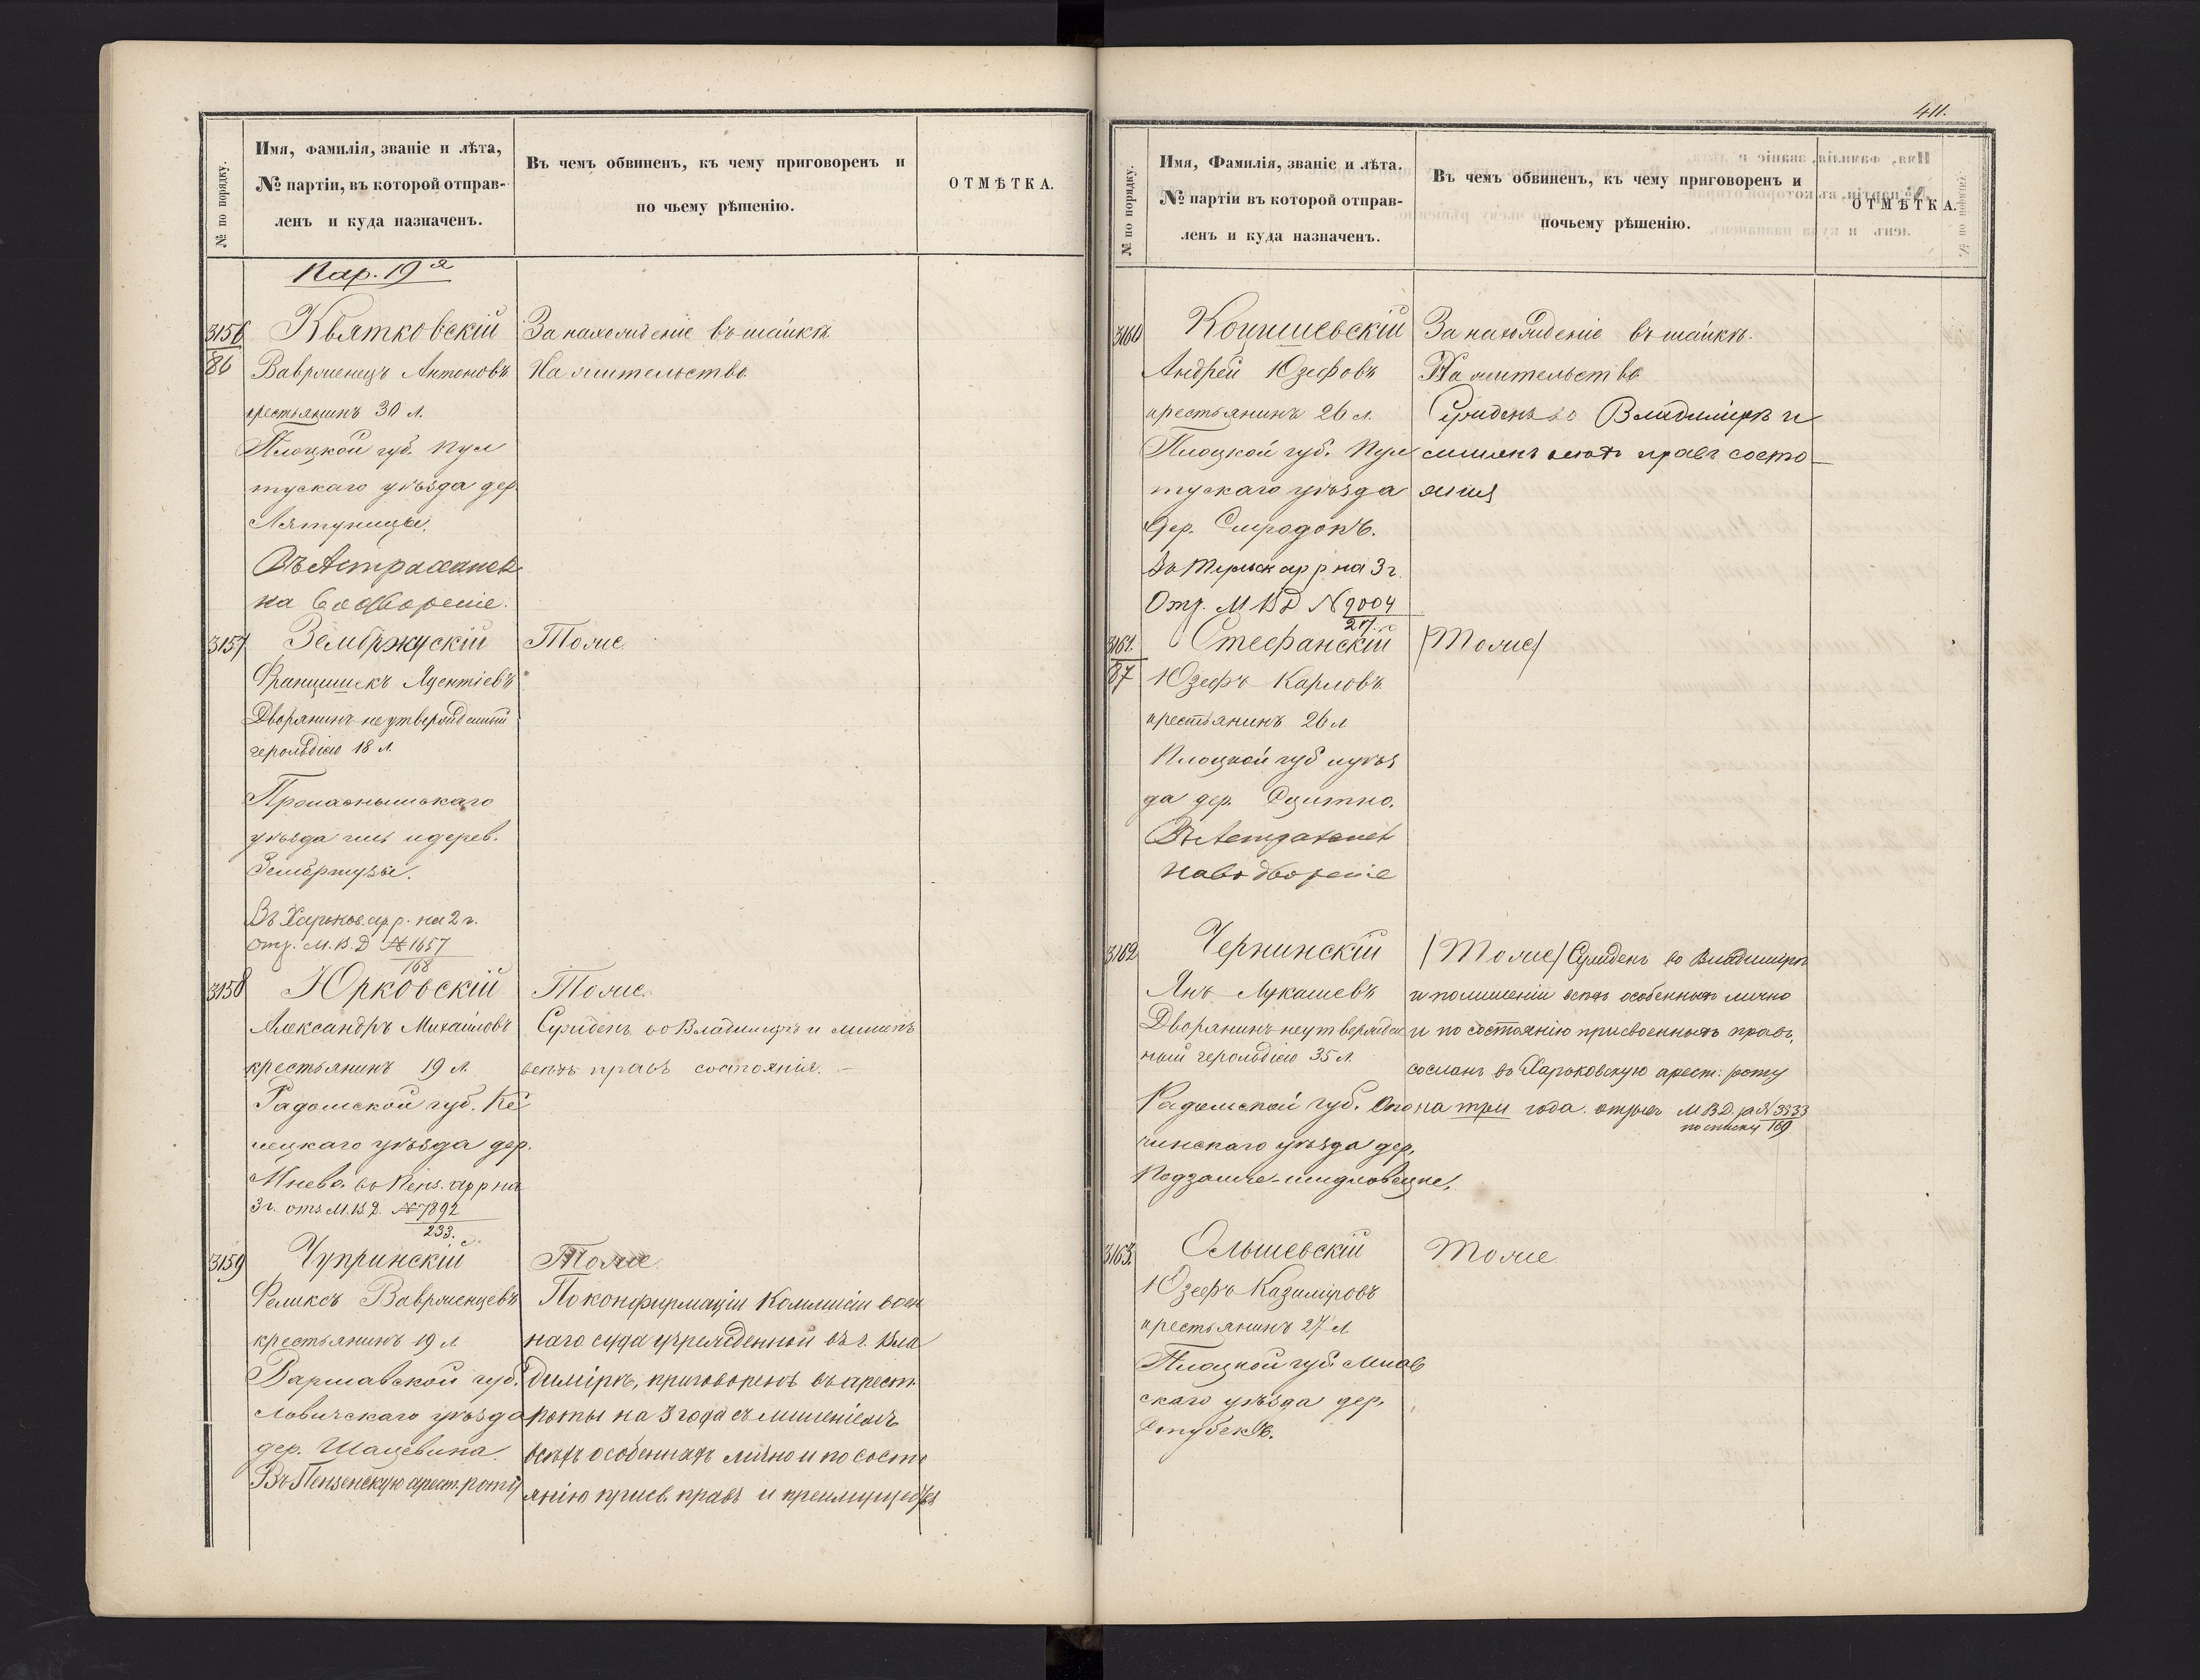 № по порядку.
Имя, фамилія, званіе и лѣта,
№ партіи, въ которой отправ-
ленъ и куда назначенъ.
Въ чемъ обвиненъ, къ чему приговоренъ и
по чьему рѣшенію.
ОТМѢТКА.
Пар. 19я
3156
86
Квятковскій
Вавржинецъ Антоновъ
крестьянинъ 30 л.
Плоцкой губ. Пул
тускаго уѣзда дер.
Въ Астрахань
на водвореніе.
За нахожденіе въ шайкѣ
На жительство
3157
Зембржускій
Францишекъ
Дворянинъ не утвержденный
герольдіею 18 л.
уѣзда гмы и дерев.
Въ Харьков. ар р. на 2 г.
Отз. М. В. Д № 1657
168
Тоже.
3158
Юрковскій
Александръ Михайловъ
крестьянинъ 19 л.
Радомской губ. Кѣ
лецкаго уѣзда дер.
Мнево. въ Пенз. ар р на
3 г. отз М. В. Д. № 7892
233.
Тоже.
Сужденъ во Владимирѣ и лишенъ
всехъ правъ состоянія. —
3159
Чупринскій
Феликсъ Вавржинцевъ
крестьянинъ 19 л
Варшавской губ.
Ловичскаго уѣзда
дер.
Въ Пензенскую арест. роту
Тоже.
По конфирмаціи Коммисіи воен
наго суда учрежденной въ г. Вла
димірѣ, приговоренъ въ арест.
роты на 3 года съ лишеніемъ
всѣхъ особенныхъ лично и по состо
янію присв. правъ и преимуществъ
411.
№ по порядку.
Имя, Фамилія, званіе и лѣта.
№ партіи въ которой отправ-
ленъ и куда назначенъ.
Въ чемъ обвиненъ, къ чему приговоренъ и
почьему рѣшенію.
ОТМѢТКА.
3160
Андрей Юзефовъ
крестьянинъ 26 л.
Плоцкой губ. Пул
тускаго уѣзда
дер.
ар р на 3 г.
Отз. М В Д № 9004
217.
За нахожденіе въ шайкѣ.
На жительство
Сужденъ во Владимірѣ и
лишенъ всехъ правъ состо-
янія
3161.
87
Стефанскій
Юзефъ Карловъ
крестьянинъ 26 л
Плоцкой губ
да дер.
Въ Астрахань
на водвореніе
/Тоже/
3162
Чернинскій
Янъ Лукашевъ
Дворянинъ неутвержден
ный герольдіею 35 л.
Радомской губ. Опо
чинскаго уѣзда дер.
Подзамче-шидловецке.
/Тоже/ Сужденъ во Владимірѣ
и по лишеніи всехъ особенныхъ лично
и по состоянію присвоенныхъ правъ,
сосланъ въ Харьковскую арест: роту
на три года. М В Д. за № 3333
по списку 169
3163.
Ольшевскій
Юзефъ Казиміровъ
крестьянинъ 27 л
Плоцкой губ. Млав
скаго уѣзда дер.
Тоже